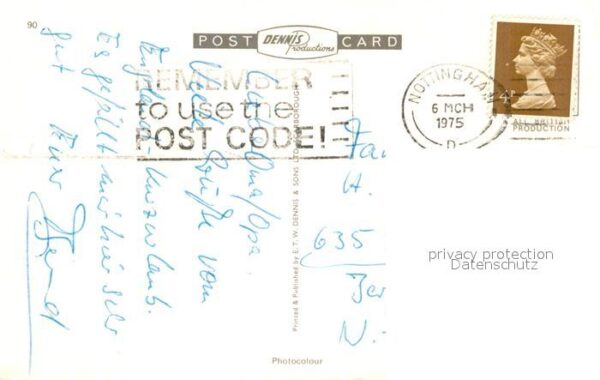 90
POST DENNIS Productions CARD
REMEMBER
to use the
POST CODE!
NOTTINGHAM
6 MCH
1975
D
ALL BRITISH
PRODUCTION
Liebe Oma/Opa.
Viele Grüße vom
England-Kurzurlaub.
Es gefällt mir hier sehr
gut
Euer Bernd
Fa
H.
635
Ber
N
privacy protection
Datenschutz
Printed & Published by E.T.W. DENNIS & SONS LTD., SCARBOROUGH
Photocolour